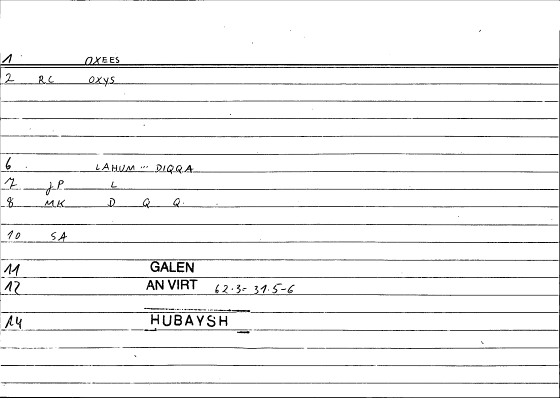 1 OXEES
2 RC OXYS
6 LAHUM ... DIQQA
7 JP L
8 MK D Q Q
10 SA
11 GALEN
12 AN VIRT 62.3= 31.5-6
14 HUBAYSH